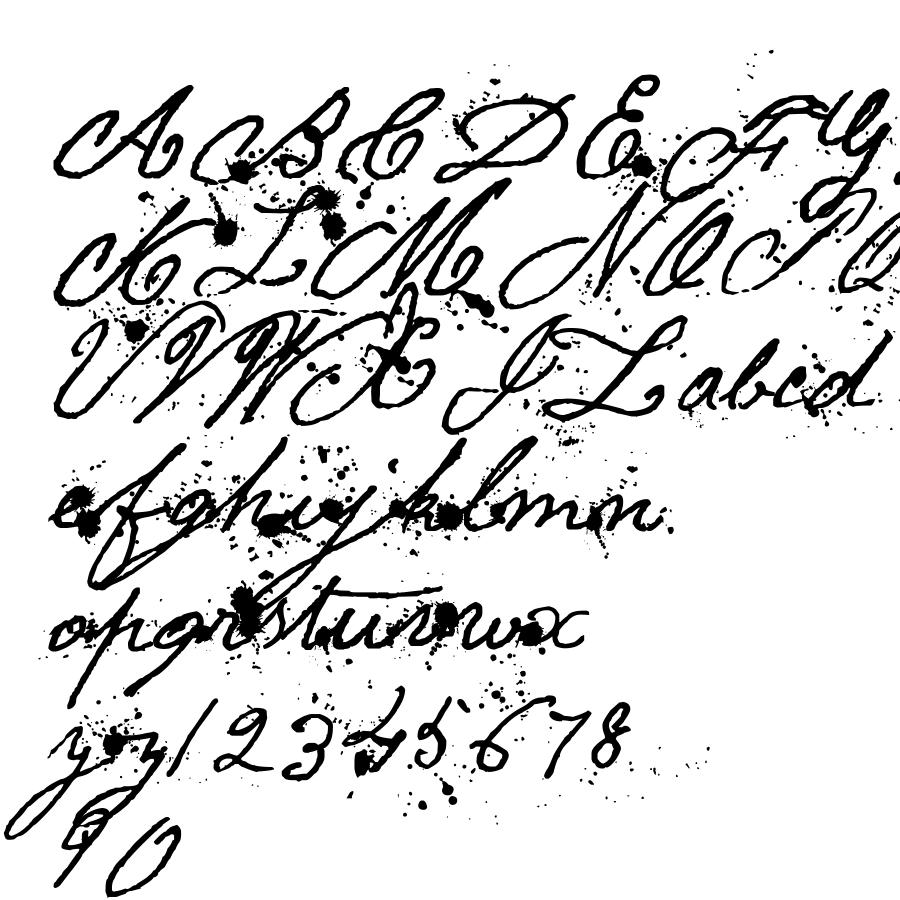 ABCDEFG
KLMNOPQ
UVWXYZabcd
efghijklmn
opqrstuvwx
yz12345678
90